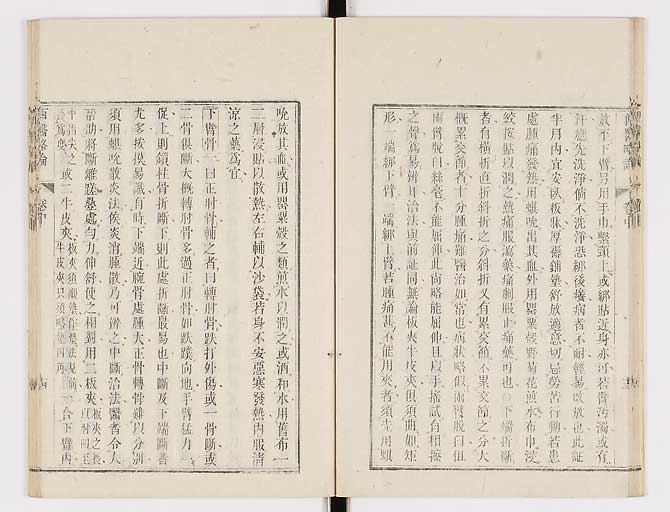 敷平下臂另用手巾繫頸上或綁貼近身亦可若臂污濁或有
汗應先洗淨倘不洗淨恐綁後癢病者不耐輕易啟放也此証
半月內宜安臥板牀厚褥鋪墊舒放適意切忌勞苦行動若患
處腫痛發熱用蜞吮出其血外用罌粟殼野菊花煎水布巾浸
絞按貼以潤之熱痛服瀉藥痛劇服止痛藥可也 下端折斷
者有橫折直折斜折之分斜折又有累交節不累交節之分大
概累交節者十分腫痛難醫治如常也病狀略似兩臂脫臼但
兩臂脫臼絲毫不能屈伸此尚略能屈伸且以手搖試有相擦
之聲為易辨耳治法與前証同無論板夾牛皮夾俱須曲如矩
形一端綁下臂一端綁上臂若腫痛甚不能用夾者須先用蜞
吮放其血或用罌粟殼之類煎水以潤之或酒和水用舊布一
二層浸貼以散熱左右輔以沙袋若身不安惡寒發熱內服清
涼之藥為宜
下臂骨一曰正肘骨輔之者曰轉肘骨跌打外傷或一骨斷或
二骨俱斷大概轉肘骨多過正肘骨如跌蹼向地手臂猛力一
促上則鎖柱骨折斷下則此處折斷最易也中斷及下端斷者
尤多按摸易識有時下端近腕骨處腫大正骨轉骨難以分別
須用蜞吮散炎法俟炎消腫散乃可辨之中斷治法醫者令人
幫助將斷離蹉疊處勻力伸舒使之相對用二板夾
中指夾之或二牛皮夾
為度
牛皮夾只須略墊四角
一合下臂內
西醫略論
卷中